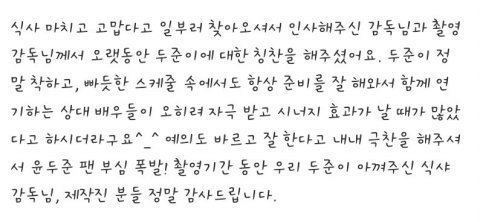 식사 마치고 고맙다고 일부러 찾아오셔서 인사해주신 감독님과 촬영
감독님께서 오랫동안 두준이에 대한 칭찬을 해주셨어요. 두준이 정
말 착하고, 빠듯한 스케줄 속에서도 항상 준비를 잘 해와서 함께 연
기하는 상대 배우들이 오히려 자극 받고 시너지 효과가 날 때가 많았
다고 하시더라구요^_^ 예의도 바르고 잘 한다고 내내 극찬을 해주셔
서 윤두준 팬 부심 폭발! 촬영기간 동안 우리 두준이 아껴주신 식샤
감독님, 제작진 분들 정말 감사드립니다.